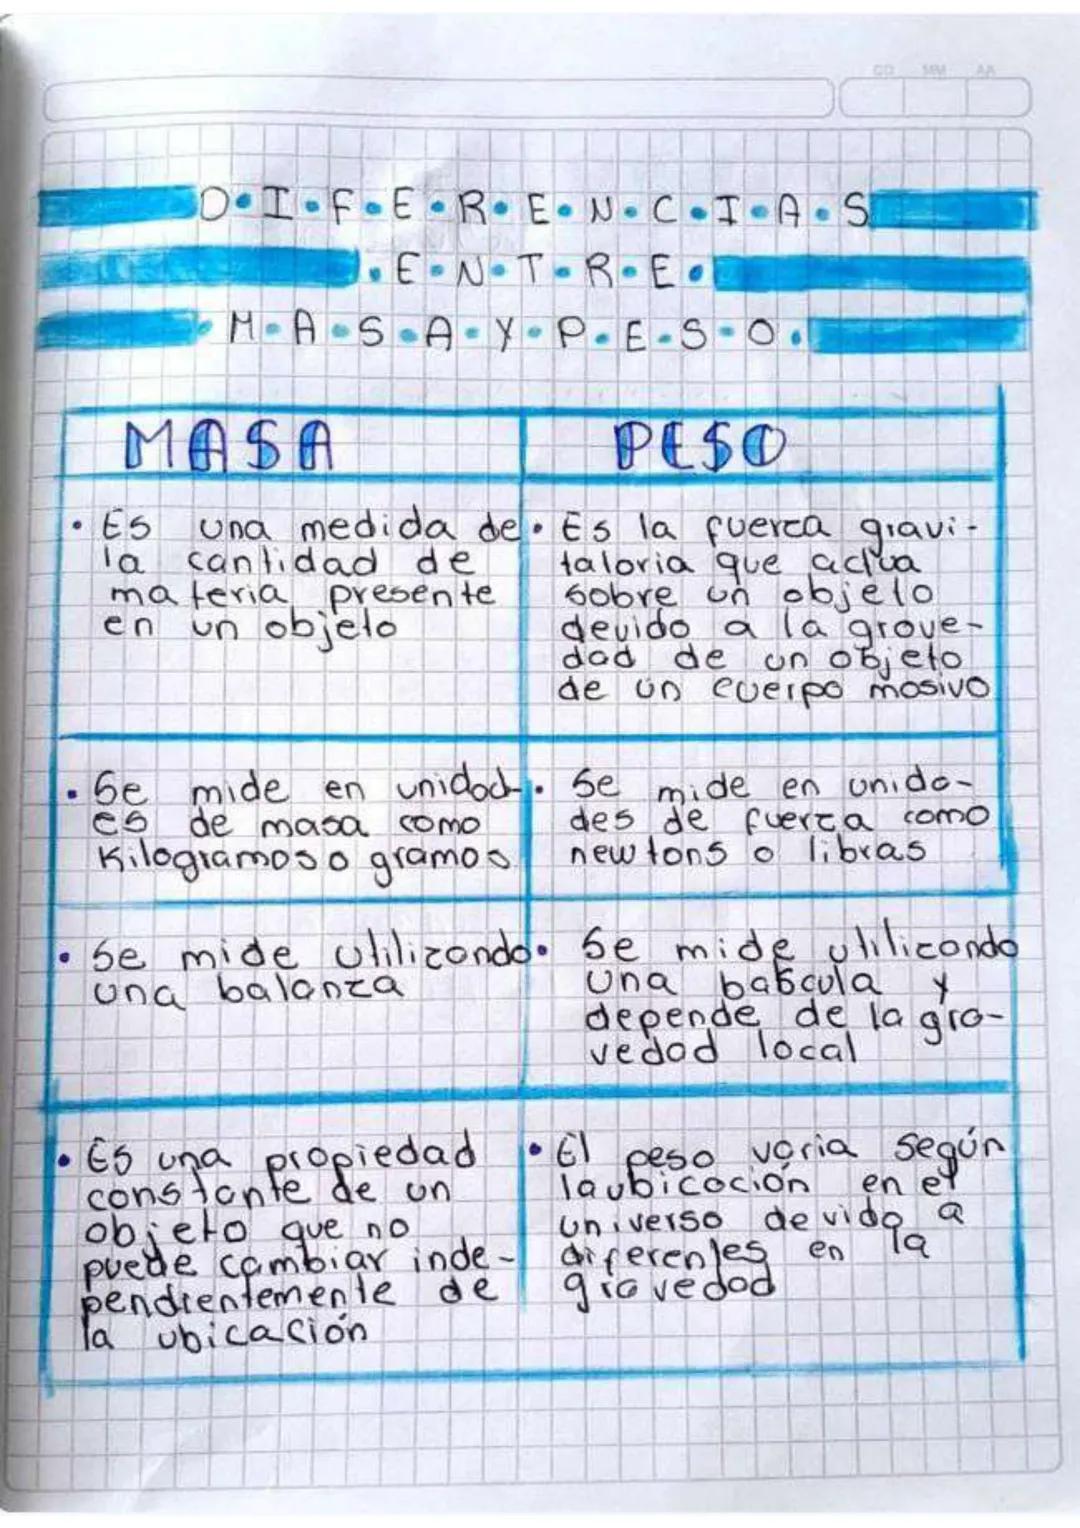 DD MM AA
D·I·F·E·R·E·N·C·I·A·S
·E·N·T·R·E·
·M·A·S·A·Y·P·E·S·O·
MASA
PESO
· Es una medida de
la cantidad de
materia presente
en un objeto
· Es la fuerza gravi-
tatoria que actua
sobre un objeto
devido a la grave-
dad de un objeto
de un cuerpo masivo
· Se mide en unidad-
es de masa como
Kilogramos o gramos
· Se mide en unida-
des de fuerza como
newtons o libras
· Se mide utilizando
una balanza
· Se mide utilizando
una bascula y
depende de la gra-
vedad local
· Es una propiedad
constante de un
objeto que no
puede cambiar inde-
pendientemente de
la ubicación
· El peso varia según
la ubicación en el
universo devido a
diferentes en la
gravedad